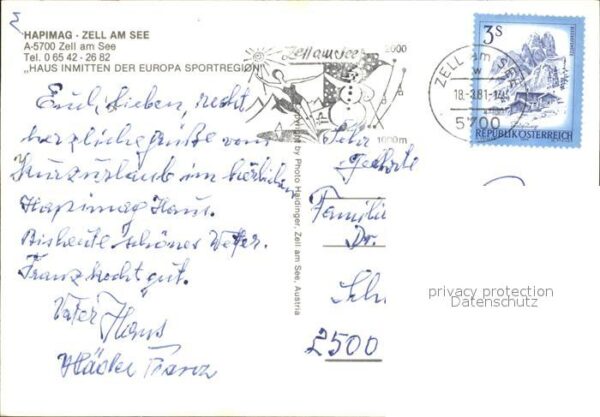 HAPIMAG · ZELL AM SEE
A-5700 Zell am See
Tel. 0 65 42 · 26 82
„HAUS INMITTEN DER EUROPA SPORTREGION"
Zell am See
2000
1000m
ZELL am SEE
18.-3.81-
5700
3 S
REPUBLIK ÖSTERREICH
Lieben, recht
herzliche Grüße vom
Kurzurlaub im herrlichen
Hapimag Haus.
Bis heute schönes Wetter.
Franz kocht gut.
Vater Hans
Franz
Copyright by Photo Haidinger, Zell am See, Austria
Sehr
Geehrte
Familie
Dr.
2500
privacy protection
Datenschutz